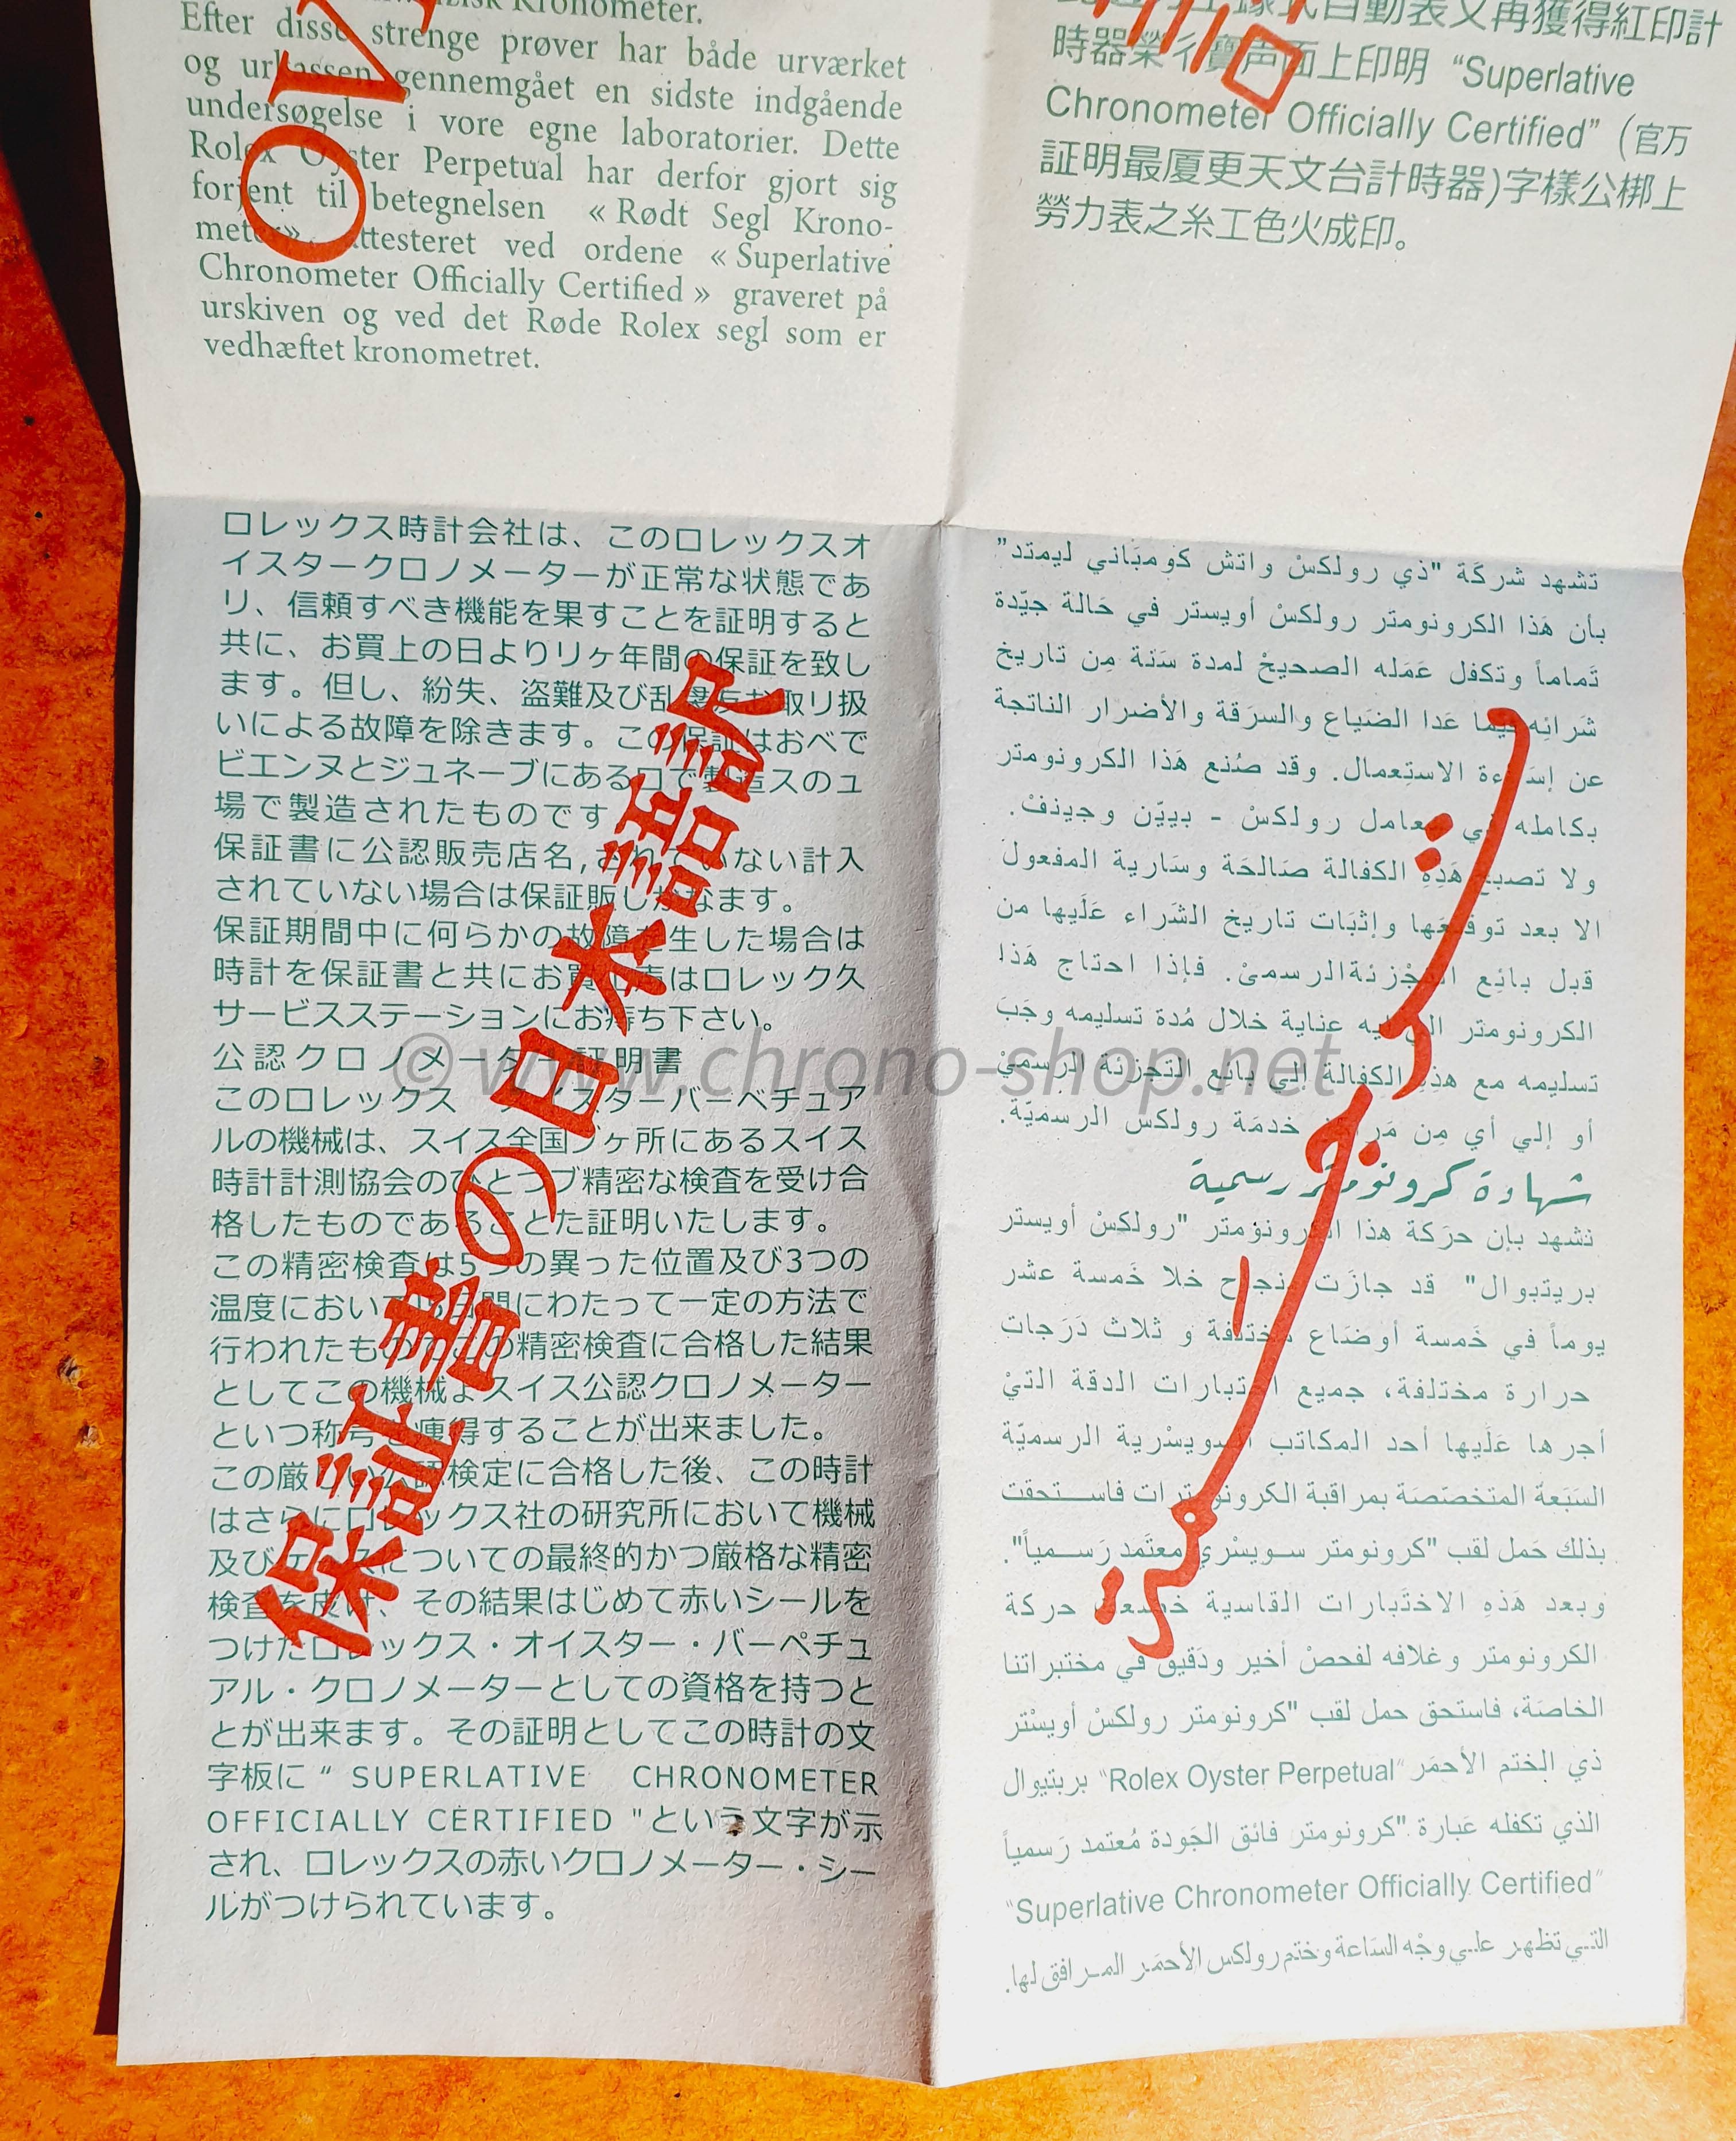 Kronometer.
Efter disse strenge prøver har både urværket
og urkassen gennemgået en sidste indgående
undersøgelse i vore egne laboratorier. Dette
Rolex Oyster Perpetual har derfor gjort sig
forjent til betegnelsen « Rødt Segl Krono-
meter», attesteret ved ordene « Superlative
Chronometer Officially Certified » graveret på
urskiven og ved det Røde Rolex segl som er
vedhæftet kronometret.
自動表又再獲得紅印計
時器榮 面上印明 “Superlative
Chronometer Officially Certified” (官万
証明最厦更天文台計時器)字樣公梆上
勞力表之糸工色火成印。
ロレックス時計会社は、このロレックスオ
イスタークロノメーターが正常な状態であ
り、信頼すべき機能を果すことを証明すると
共に、お買上の日よりリヶ年間の保証を致し
ます。但し、紛失、盗難及び乱 取リ扱
いによる故障を除きます。この保証はおべで
ビエンヌとジュネーブにある口で製造スのユ
場で製造されたものです
保証書に公認販売店名, ない計入
されていない場合は保証販し なます。
保証期間中に何らかの故障を生した場合は
時計を保証書と共にお買 はロレック久
サービスステーションにお持ち下さい。
公認クロノメーター証明書
このロレックス スターバーベチュア
ルの機械は、スイス全国ブヶ所にあるスイス
時計計測協会のひとつブ精密な検査を受け合
格したものであることた証明いたします。
この精密検査は5つの異った位置及び3つの
温度において 日間にわたって一定の方法で
行われたもの この精密検査に合格した結果
としてこの機械よスイス公認クロノメーター
といつ称号を 得することが出来ました。
この厳しい公認検定に合格した後、この時計
はさらにロレックス社の研究所において機械
及びケースについての最終的かつ厳格な精密
検査を 、その結果はじめて赤いシールを
つけたロレックス・オイスター・バーペチュ
アル・クロノメーターとしての資格を持つと
とが出来ます。その証明としてこの時計の文
字板に “ SUPERLATIVE CHRONOMETER
OFFICIALLY CERTIFIED "という文字が示
され、ロレックスの赤いクロノメーター・シー
ルがつけられています。
保証書の日本語訳
تشهد شركَة "ذي رولكسْ واتش كومبَاني ليمتد"
بأن هَذا الكرونومتر رولكسْ أويستر في حَالة جيّدة
تَماماً وتكفل عَمَله الصحيحْ لمدة سَنة مِن تاريخ
شَرائِه فيما عَدا الضَياع والسرَقة والأضرار الناتجة
عن إسَاءة الاستِعمال. وقد صُنع هَذا الكرونومتر
بكامله في معامل رولكسْ - بييّن وجينفْ.
ولا تصبح هَذِهِ الكفالة صَالحَة وسَارية المفعولَ
الا بعد توقيعَها وإثبَات تاريخ الشَراء عَلَيها من
قبل بائِع التجْزئةالرسمىْ. فإذا احتاج هَذا
الكرونومتر الى ايه عناية خلال مُدة تسليمه وجَبَ
تسليمه مع هذِهِ الكفالة إلى بائع التجزئة الرسميْ
أو إلي أي مِن مَراكز خدمَة رولكسْ الرسميّة.
شهادة كرونومتر رسمية
نشهد بإن حرَكة هذا الكرونومتر "رولكسْ أويستر
بريتبوال" قد جازَت بنجاح خلا خَمسة عشر
يوماً في خَمسة أوضَاع مختلفة و ثلاث دَرَجات
حرارة مختلفة، جميع اختبارات الدقة التيْ
أجرها عَلَيها أحد المكاتب السويسْرية الرسميّة
السَبَعة المتخصّصَة بمراقبة الكرونومترات فاستحقت
بذلك حَمل لقب "كرونومتر سويسْري معتَمد رَسمياً".
وبعد هَذِهِ الاختَبارات القاسية خضعت حركة
الكرونومتر وغلافه لفحصْ أخير ودَقيق في مختبراتنا
الخاصَة، فاستحق حمل لقب "كرونومتر رولكسْ أويسْتر
ذي الختم الأحمَر "Rolex Oyster Perpetual" بربتيوال
الذي تكفله عَبارة "كرونومتر فائق الجَودة مُعتمد رَسمياً
"Superlative Chronometer Officially Certified"
التي تظهر علي وجْه السَاعة وختم رولكس الأحمَر المرافق لها.
© www.chrono-shop.net